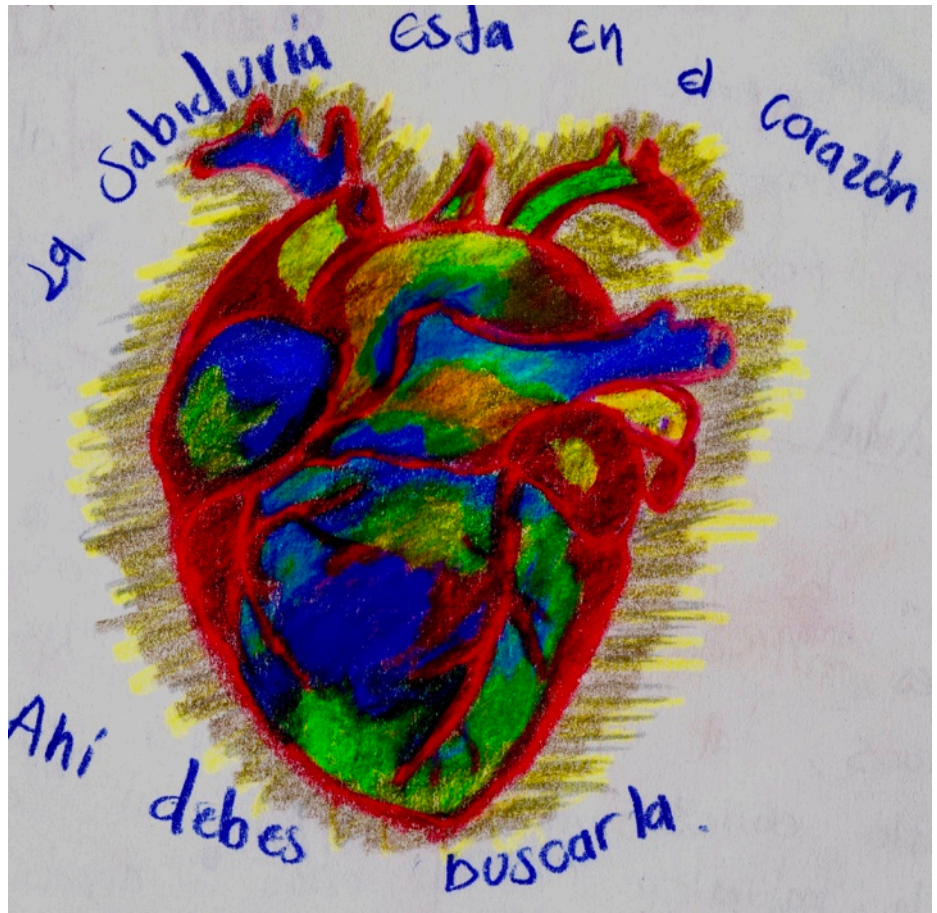 La Sabiduria esta en el corazón
Ahí debes buscarla.